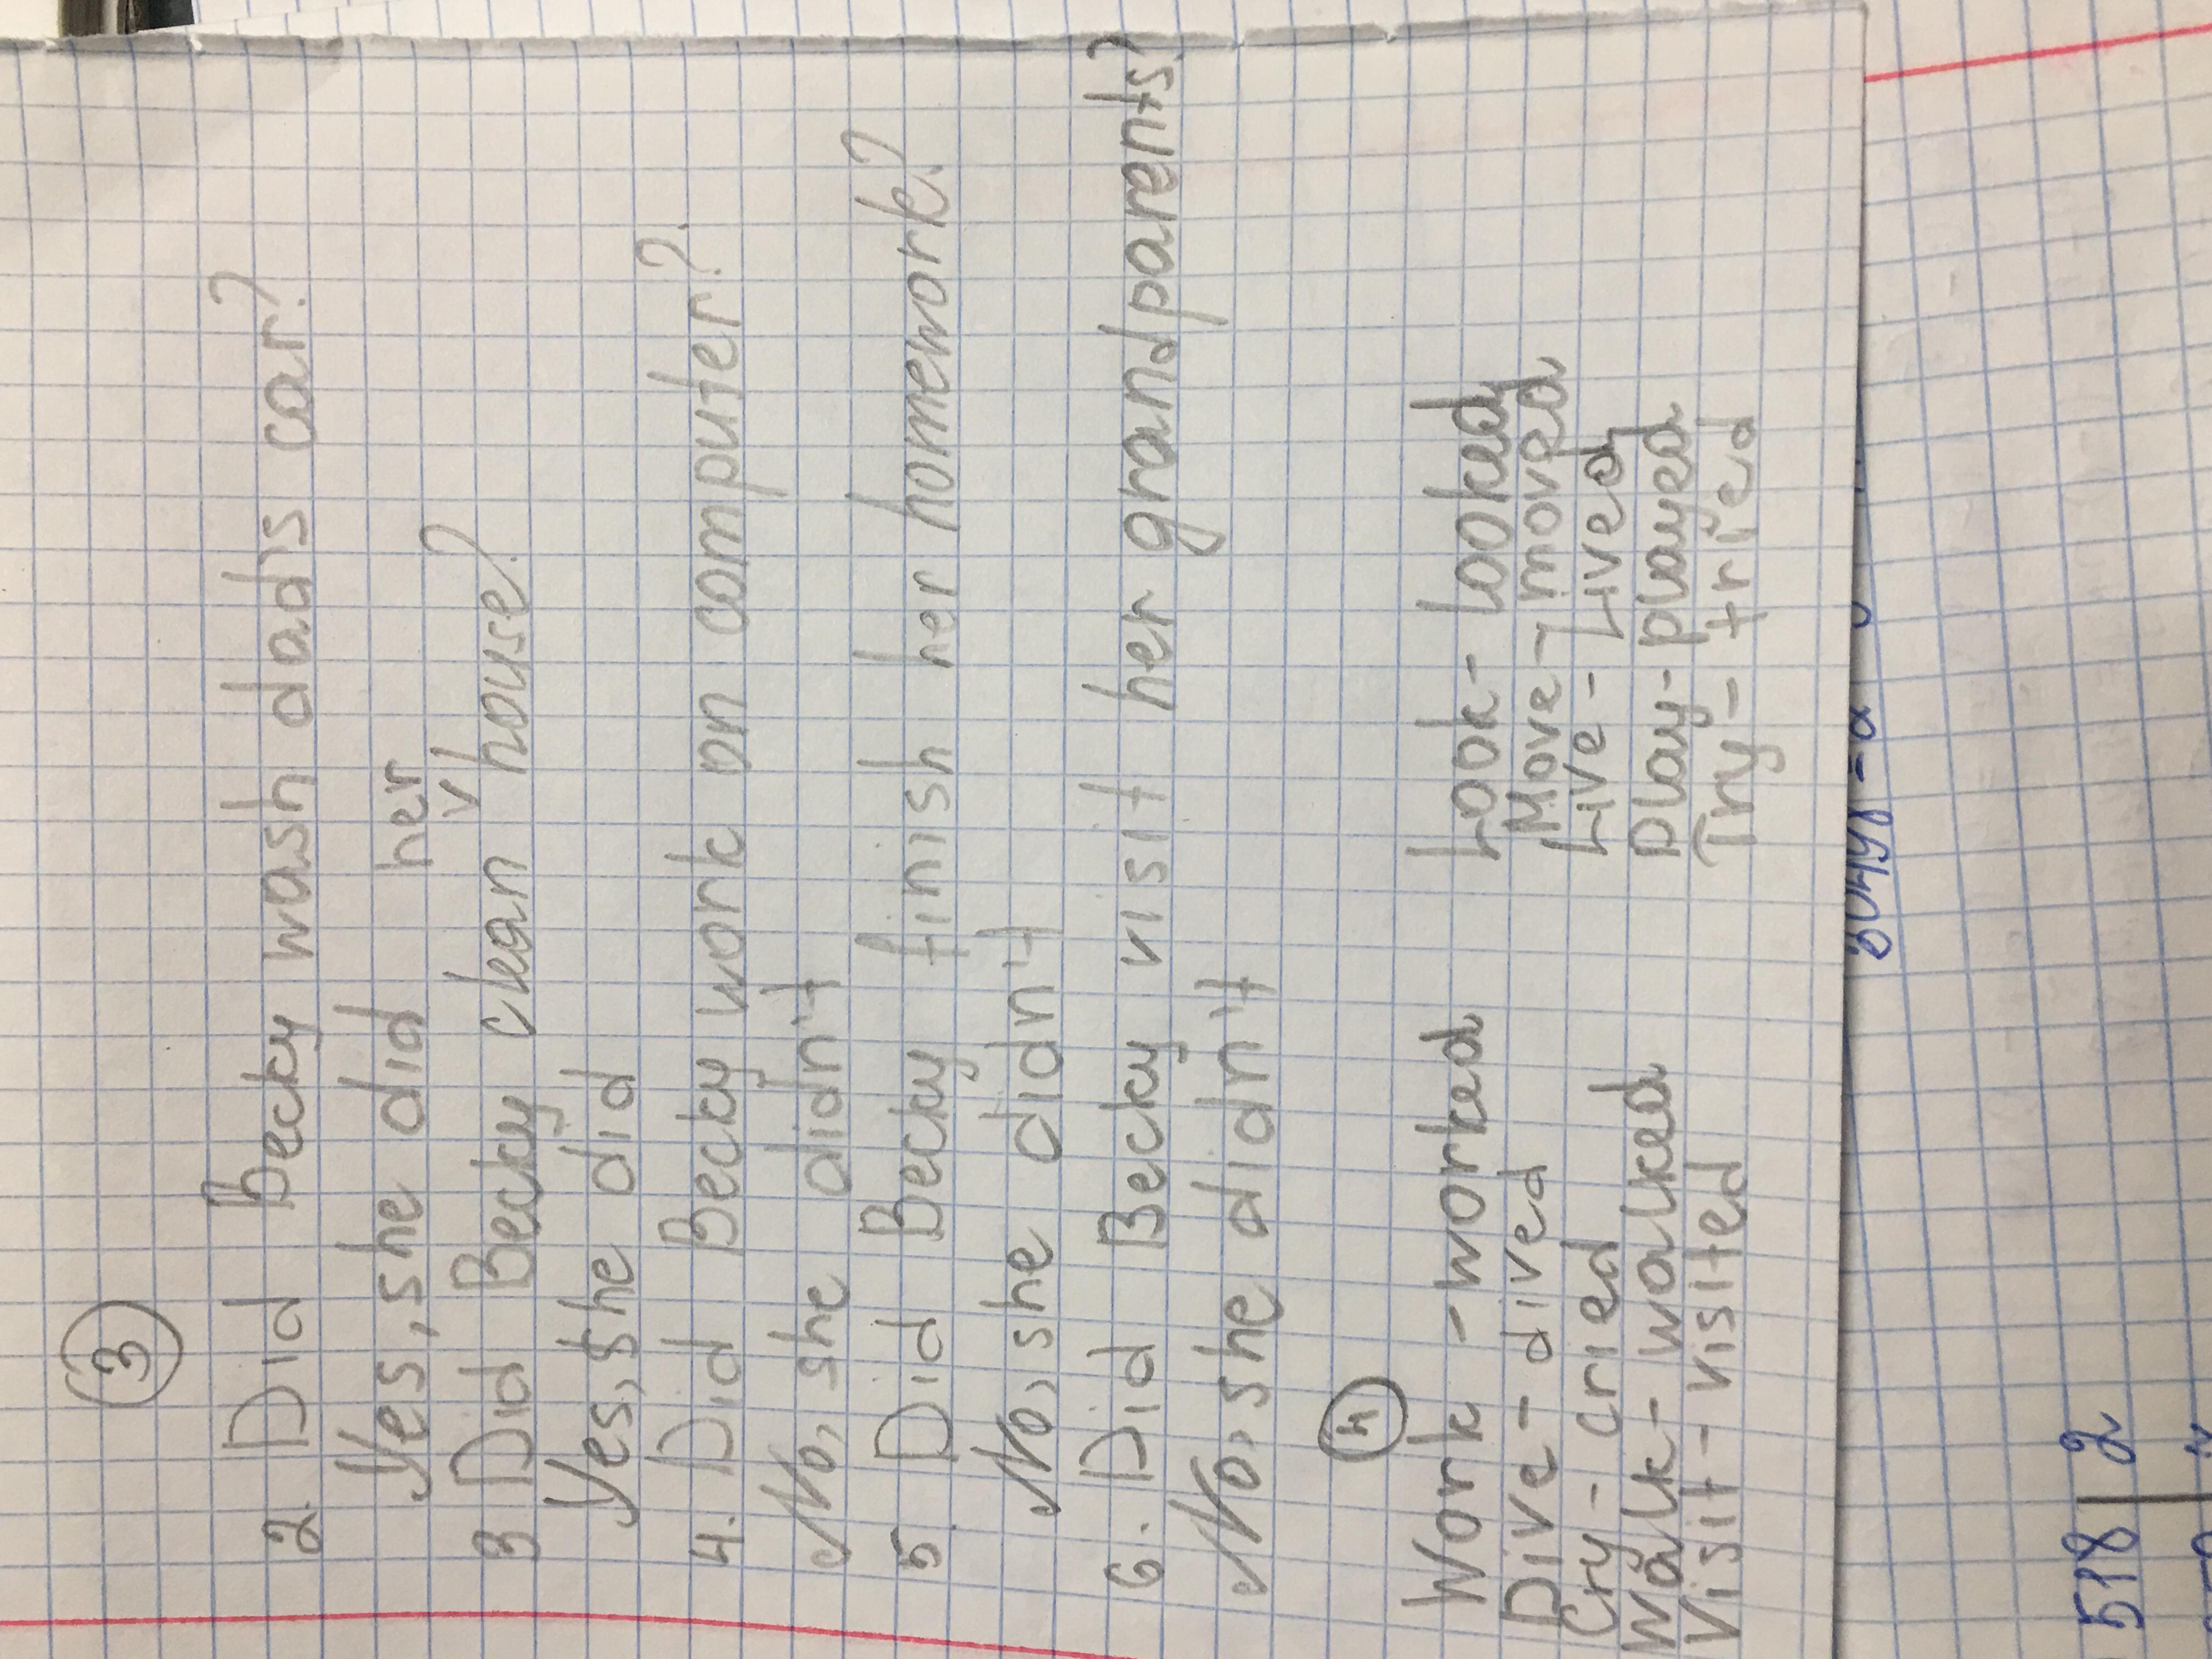 3
2. Did Becky wash dad's car?
Yes, she did
her
3 Did Becky clean v house?
Yes, she did
4. Did Becky work on computer?
No, she didn't
5. Did Becky finish her homework?
No, she didn't
6. Did Becky visit her grandparents?
No, she didn't
4
Work - worked
Dive - dived
Cry - cried
Walk - walked
Visit - visited
Look - looked
Move - moved
Live - Lived
Play - played
Try - tried
518 2